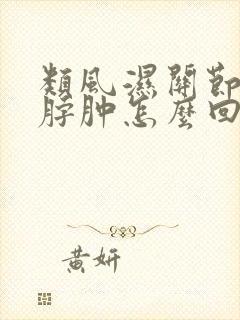 類風濕關節
脖肿怎麼回
黄妍